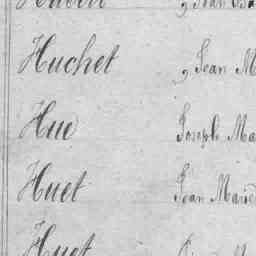 Huchet , Jean M
Hue Joseph Ma
Huet Jean Marie
Huet